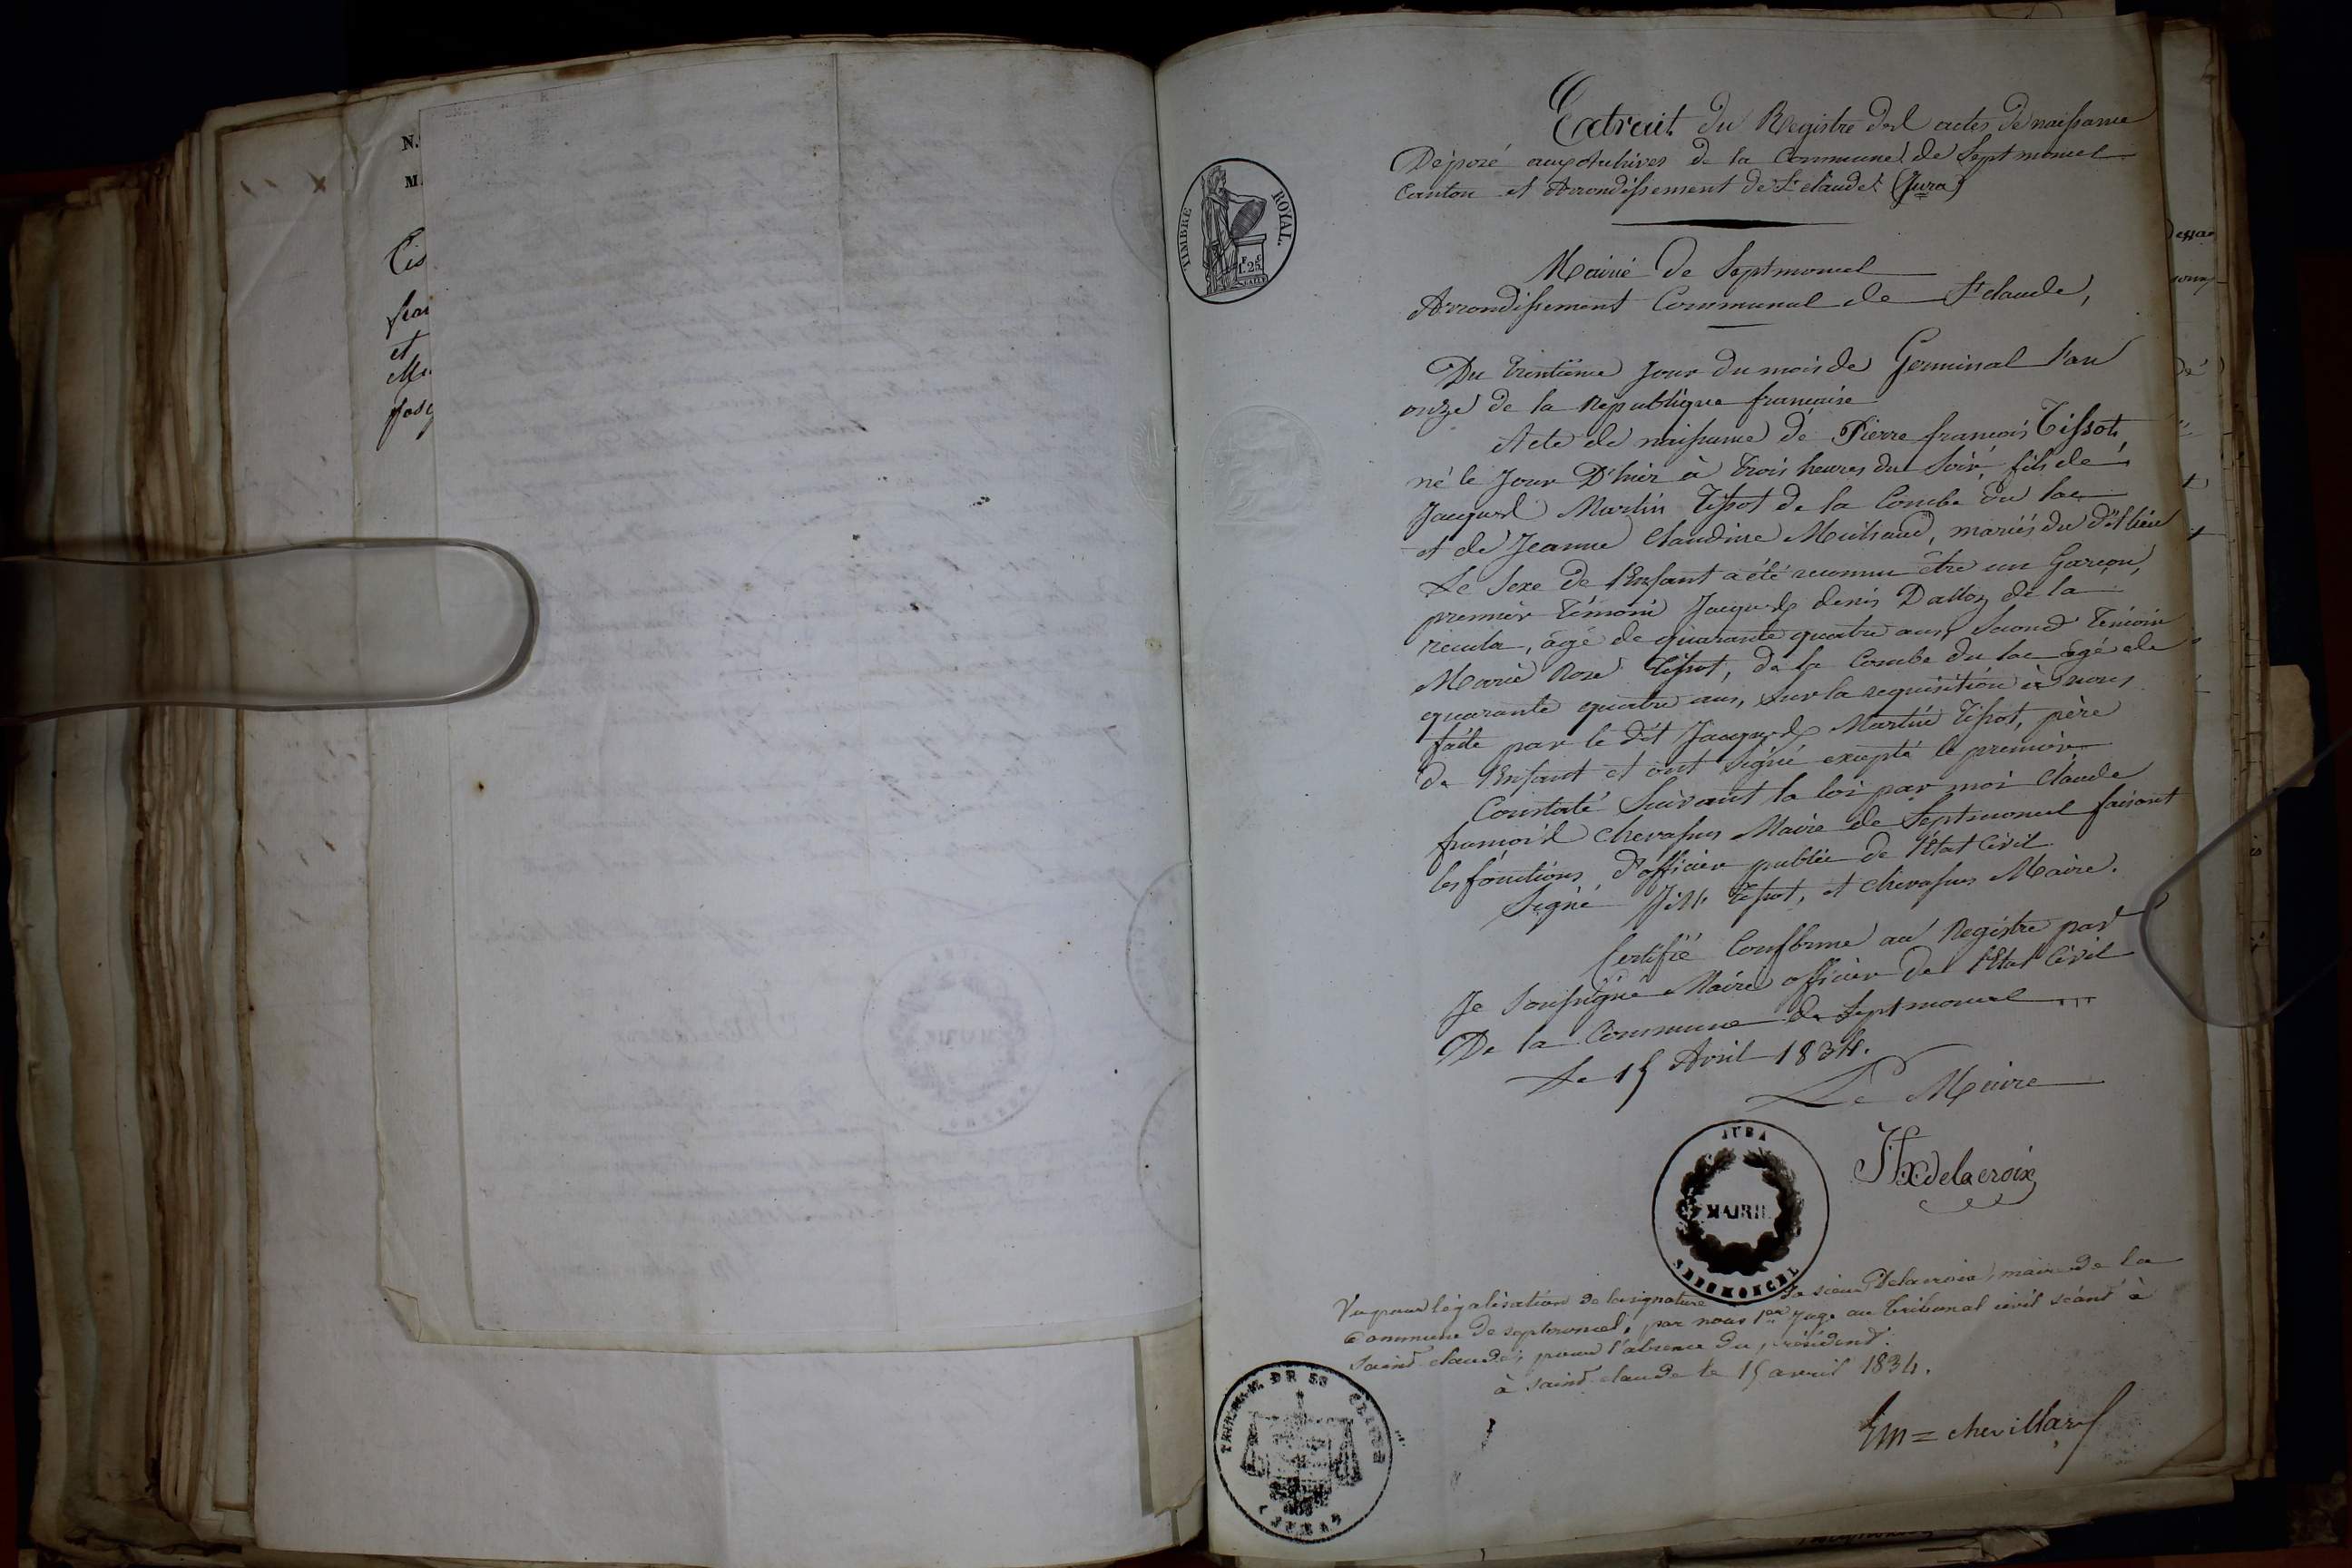 N.
M.
Tis
et
Extrait du Registre des actes de naissance
Déposé aux Archives de la Commune de Septmoncel
Canton et Arrondissement de St Claude (Jura)
TIMBRE ROYAL.
1 F 25 C
Mairie de Septmoncel
Arrondissement Communal de St Claude,
Du trentième jour du mois de Germinal l'an
onze de la République française
Acte de naissance de Pierre françois Tissot,
né le Jour D'hier à trois heures du Soir, fils de
Jacques Martin Tissot de la Combe du lac
et de Jeanne Claudine Michaud, mariés du dit lieu
Le Sexe de l'Enfant a été reconnu être un Garçon,
premier témoin Jacques denis Dalloz de la
ricula, agé de quarante quatre ans, Second Témoin
Marie Rose Tissot, de la Combe du lac agé de
quarante quatre ans, Sur la requisition à nous
faite par le dit Jacques Martin Tissot, père
de l'Enfant et ont Signé excepté le premier
Constaté Suivant la loi par moi Claude
françois Chevassus Maire de Septmoncel faisant
les fonctions d'officier public de l'état Civil
Signé Tissot, et Chevassus Maire.
Certifié Conforme au Registre par
Je Soussigné Maire officier de l'Etat Civil
De la Commune de Septmoncel
Le 15 Avril 1834.
Le Maire
JURA
MAIRIE
SEPTMONCEL
Delacroix
Vu pour légalisation de la signature du sieur Delacroix, maire de la
Commune de septmoncel, par nous 1er Juge au Tribunal civil séant à
Saint Claude, pour l'absence du président.
à saint Claude le 15 avril 1834.
TRIBUNAL DE ST CLAUDE
(JURA)
Em = chevillard